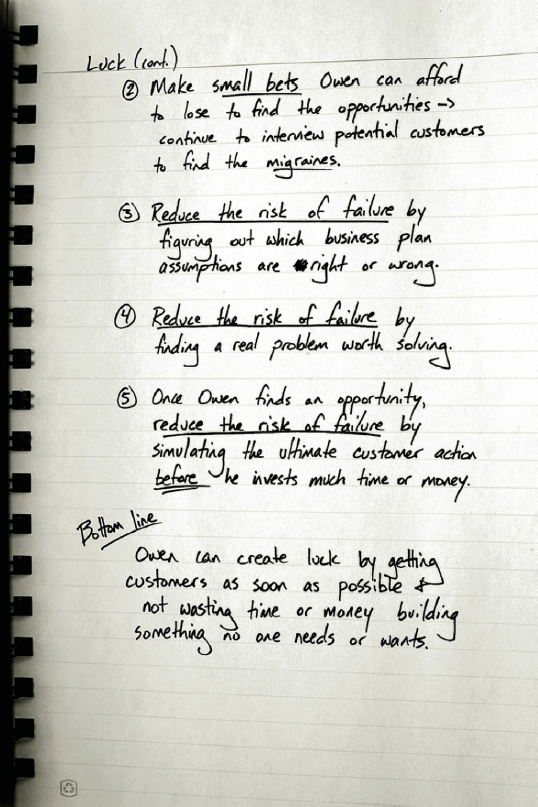 Luck (cont.)
② Make small bets Owen can afford
to lose to find the opportunities ->
continue to interview potential customers
to find the migraines.
③ Reduce the risk of failure by
figuring out which business plan
assumptions are right or wrong.
④ Reduce the risk of failure by
finding a real problem worth solving.
⑤ Once Owen finds an opportunity,
reduce the risk of failure by
simulating the ultimate customer action
before he invests much time or money.
Bottom line
Owen can create luck by getting
customers as soon as possible &
not wasting time or money building
something no one needs or wants.